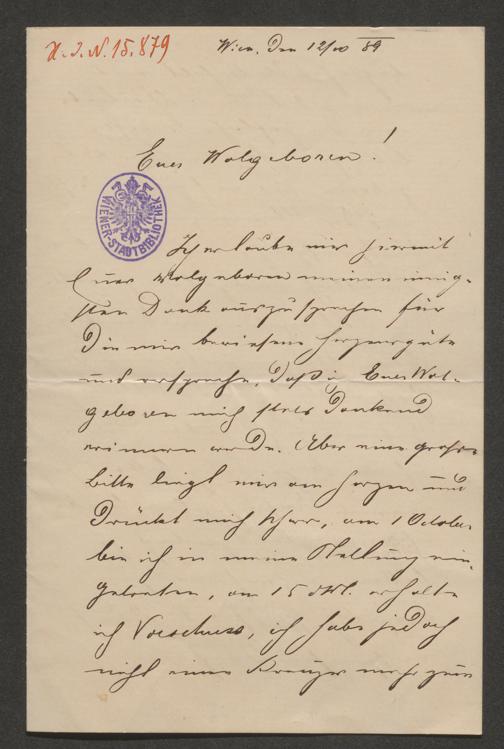 H. I. N. 15,879
Wien, den 12/10 89
Euer Wolgeboren!
WIENER-STADTBIBLIOTHEK
Ich erlaube mir hiermit
Euer Wolgeboren meinen innig-
sten Dank auszusprechen für
die mir bewiesene Herzensgüte
und verspreche, daß ich Euer Wol-
geboren mich stets dankend
erinnern werde. Aber eine große
bitte liegt mir am Herzen und
drückt mich schwer, am 1 October
bin ich in meine Stellung ein-
getreten, am 15 Okt. erhalte
ich Vorschuss, ich habe jedoch
nicht einen Kreuzer mehr zum